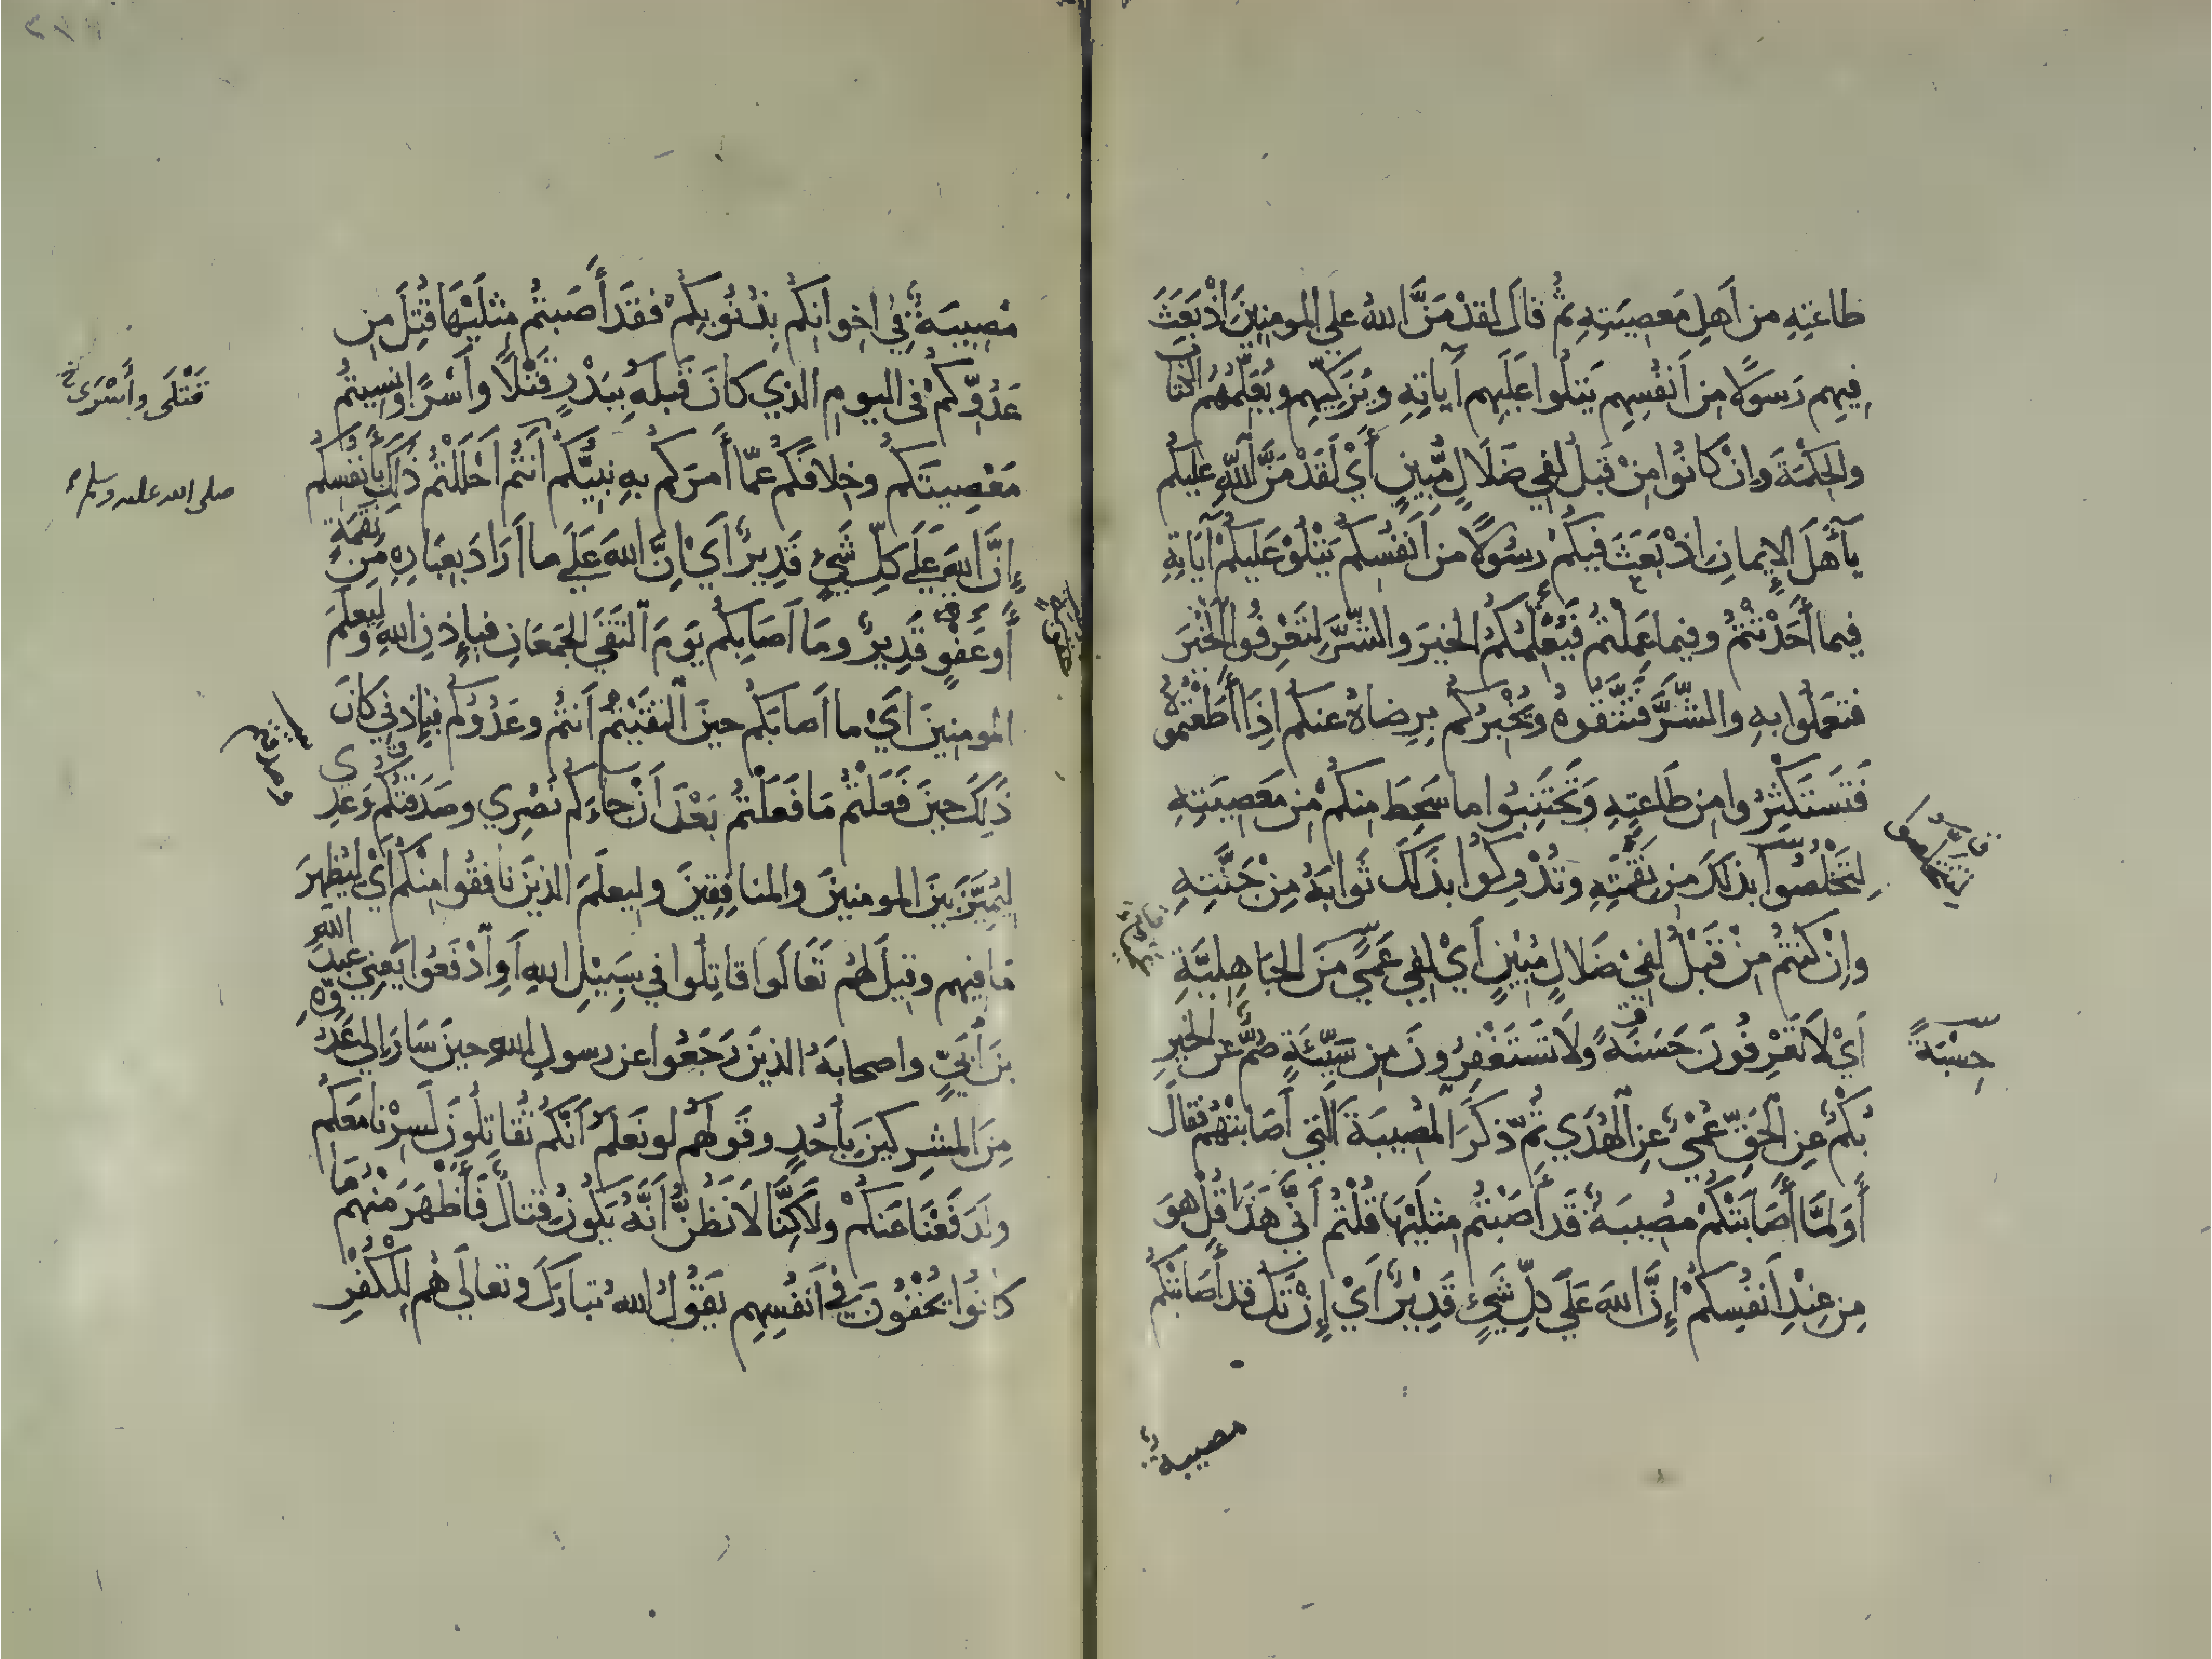 طاعتِهِ من أهلِ مَعصِيَتِهِ ثمُّ قالَ لقدْ مَنَّ اللهُ على المومنِينَ اذْ بَعَثَ
فِيهِم رَسوَلًا مِن أنفُسِهِم يَتلُوا عَلَيهِم آيَاتِهِ ويُزَكِّيهِم ويُعَلِّمُهُم الكتابَ
والحِكمَةَ وَاِنْ كَانُوا مِنْ قَبلُ لفِي ضَلَالٍ مُّبِينٍ أَيْ لَقَدْ مَنَّ اللّهِ عليكُم
يآ أهلَ الإيمانِ اذْ بَعَثَ فيكُم رسُولًا من أنفُسِكُم يَتْلُوْ عَلَيكُمْ آيَاتِهِ
فِيما أحَدْثتُمْ وفيما عَمِلتُم فَيُعَلِّمُكُمُ الخيرَ والشَّرَّ لِتَعْرِفُوا الخَيْرَ
فتَعمَلُوا بهِ والشَّرَّ فَتَّتَقُوهُ ويُخْبِرُكُم بِرِضاهُ عنكم اِذَا أَطَعْتُمُوهُ
فَتَستَكثِرُوا من طَاعتِهِ وَتَجْتَنِبُوا ما سَخِطَ مِنكُمْ مِن مَعصِيَتِهِ
لِتَخْلُصُوا بذلكَ مِن نِقْمَتِهِ وتُدْرِكُوا بذَلكَ ثَوابَهُ مِنْ جَنَّتِهِ
وإنْ كُنتُم مِنْ قَبْلُ لفِيْ ضَلالٍ مُبِيْنٍ أيْ لفِي عَمًى مِّنَ الجَاهِلِيَّةِ
اَيْ لَا تَعْرِفُونَ حَسَنَةً ولَا تَستَغْفِرُونَ مِن سَيِّئَةٍ صُمٌّ عَنِ الخيرِ
حِسْبَةً
بُكْمٌ عِنِ الحَقِّ عُمْيٌ عِنِ الهُدَي ثُمّ ذكَرَ المُصيبَةَ التي أصَابتْهُم فقالَ
أَوَلمَّا أَصَابَتْكُمْ مصُيبَةٌ قَد أَصَبْتُم مِثلَيْهَا قُلْتُم أنَّى هَذا قُلْ هوَ
مِن عِنْدِ أنفُسِكُمْ إِنَّ اللهَ عَلَي كلِّ شَيْءٍ قَدِيْرٌ أَيْ إنْ تَكُ قد أَصَابَتْكُم
مصيبةٌ
مُصِيبَةٌ فِي اخوانِكُم بِذُنُوبِكُمْ فقَد أَصَبتُم مِثْلَيْهَا قُتِلَ مِن
عَدُوِّكُمْ فى اليومِ الذي كانَ قَبلهُ بِبَدْرٍ قَتْلًا وأسْرًا ونسِيتُم
قَتْلَى وأَسْرَى
مَعْصِيتَكُم وخِلافَكُم عمّا أَمرَكُم بهِ نبيُّكُم أنتُم أَحْلَلْتُم ذَلكَ بأنفُسِكُم
صلى الله عليه وسلم
إنَّ اللهَ عَلَي كلِّ شَيْءٍ قَدِيرٌ أَيْ اِنَّ اللهَ عَلَي ما أرَادَ بِعِبَادِهِ مِن نِقْمَةٍ
أَو عَفْوٍ قَدِيرٌ ومَا أصَابَكُم يَومَ الْتَقَي الجَمْعَانِ فبِإذنِ اللهِ وليعلَمَ
المومِنِينَ أيْ ما أصابَكُم حينَ الْتقَيْتُمْ أنتم وعَدُوّكُم فبِإذنِي كانَ
ذَلِكَ حينَ فَعَلْتُم مَا فَعَلْتُم بَعْدَ أنْ جاءَكم نَصْرِي وصَدَقتُكُم وَعْدِي
ليُمَيَّزَ بَينَ المومنينَ والمنافِقِينَ وليَعلَمَ الذينَ نافَقُوا مِنْكُم أيْ ليُظْهِرَ
مَا فيهم وقيلَ لهُم تَعَالَوا قاتِلُوا في سَبِيْلِ اللهِ أوِ ادْفَعُوا يَعنِي عبدَ اللهِ
بنَ أُبَيٍّ واصحابَهُ الذينَ رَجَعُوا عن رسولِ اللهِ حينَ سَارَ اِلي عَدُوِّهِ
مِنَ المشرِكينَ بِأُحُدٍ وقَولهُم لو نَعلَمُ أنَّكُم تُقاتِلُونَ لَسِرْنا مَعَكُم
ولَدَفَعْنَا عَنكُمْ ولَاكِنَّا لَا نَظُنُّ أنَّهُ يَكُونُ قِتالٌ فَأَظْهَرَ مِنْهُم مَا
كانُوا يُخْفُونَ فِي أنفُسِهِم يَقُولُ اللهُ تبارَكَ وتعالَي هُم لِلكُفْرِ